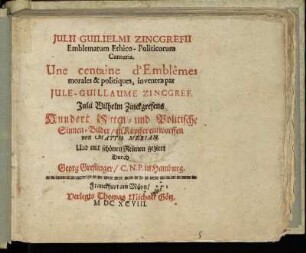 JULII GUILIELMI ZINCGREFII
Emblematum Ethico-Politicorum
Centuria.
Une centaine d'Emblêmes
morales & politiques, inventèz par
JULE-GUILLAUME ZINCGREF.
Julii Wilhelm Zinckgrefens
Hundert Sitten- und Politische
Sinnen-Bilder/ in Kupfer entworffen
von MATTH. MERIAN.
Und mit schönen Reimen geziert
Durch
Georg Greflinger/ C. N. P. in Hamburg.
Franckfurt am Mayn/
Verlegts Thomas Michael Götz.
M DC XCVIII.